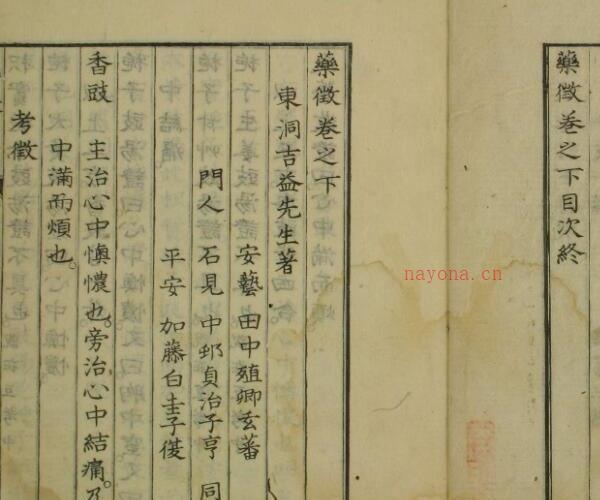 藥徵卷之下目次終
藥徵卷之下
東洞吉益先生著
安藝 田中殖卿玄蕃
門人 石見 中邨貞治子亨 同
平安 加藤白圭子復
香豉 主治心中懊憹也。旁治心中結痛。及
中滿而煩也。
考徵
nayona.cn